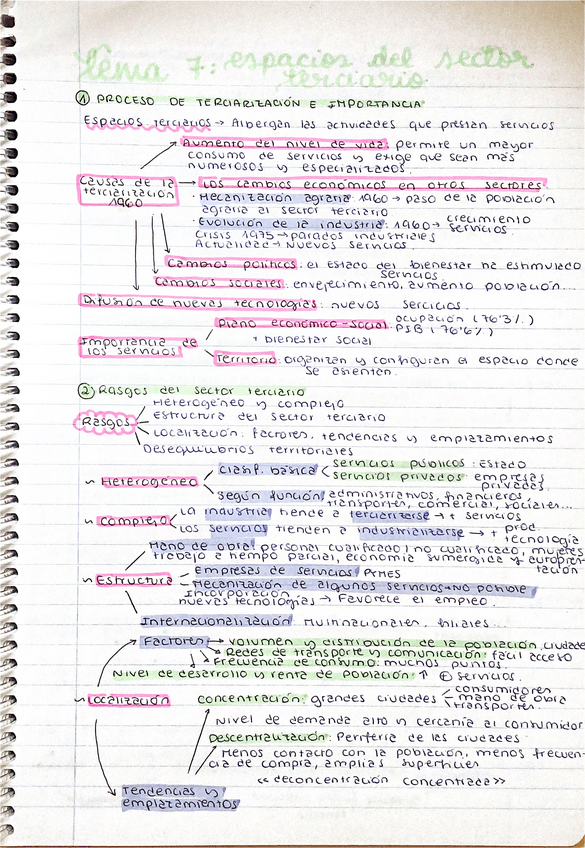 Tema 7: espacios del sector
terciario
① PROCESO DE TERCIARIZACIÓN E IMPORTANCIA
Espacios terciarios → Albergan las actividades que prestan servicios
Aumento del nivel de vida: permite un mayor
consumo de servicios y exige que sean más
numerosos y especializados.
Causas de la
terciarización
1960
Los cambios económicos en otros sectores.
· Mecanización agraria: 1960 → paso de la población
agraria al sector terciario
· Evolución de la industria: 1960 → crecimiento
servicios.
Crisis 1975 → parados industriales
Actualidad → Nuevos servicios.
Cambios políticos: el Estado del bienestar ha estimulado
servicios.
Cambios sociales: envejecimiento, aumento población...
Difusión de nuevas tecnologías: nuevos servicios.
Importancia de
los servicios
Plano económico-social: ocupación (76'3%)
PIB (76'6%)
+ bienestar social
Territorio: organizan y configuran el espacio donde
se asientan.
② Rasgos del sector terciario
Rasgos
Heterogéneo y complejo
Estructura del sector terciario
Localización: factores, tendencias y emplazamientos
Desequilibrios territoriales
~ Heterogéneo
Clasif. básica
servicios públicos: Estado
servicios privados: empresas
privadas.
según función: administrativos, financieros,
transportes, comercial, sociales...
~ Complejo
La industria tiende a terciarizarse → + servicios
Los servicios tienden a industrializarse → + prod.
+ tecnología
~ Estructura
Mano de obra: personal cualificado/no cualificado, mujeres
trabajo a tiempo parcial, economía sumergida y
Empresas de servicios: PYMES
Mecanización de algunos servicios → NO posible
Incorporación
nuevas tecnologías → Favorece el empleo.
Internacionalización: Multinacionales, filiales...
~ Localización
Factores
→ volumen y distribución de la población, ciudade
→ Redes de transporte y comunicación: fácil acceso
→ Frecuencia de consumo: muchos puntos.
Nivel de desarrollo y renta de población: ↑ ⊕ servicios.
Concentración: grandes ciudades
consumidores
mano de obra
transportes.
Nivel de demanda alto y cercanía al consumidor
Descentralización: Periferia de las ciudades
Menos contacto con la población, menos frecuen-
cia de compra, amplias superficies
<< deconcentración concentrada >>
Tendencias y
emplazamientos